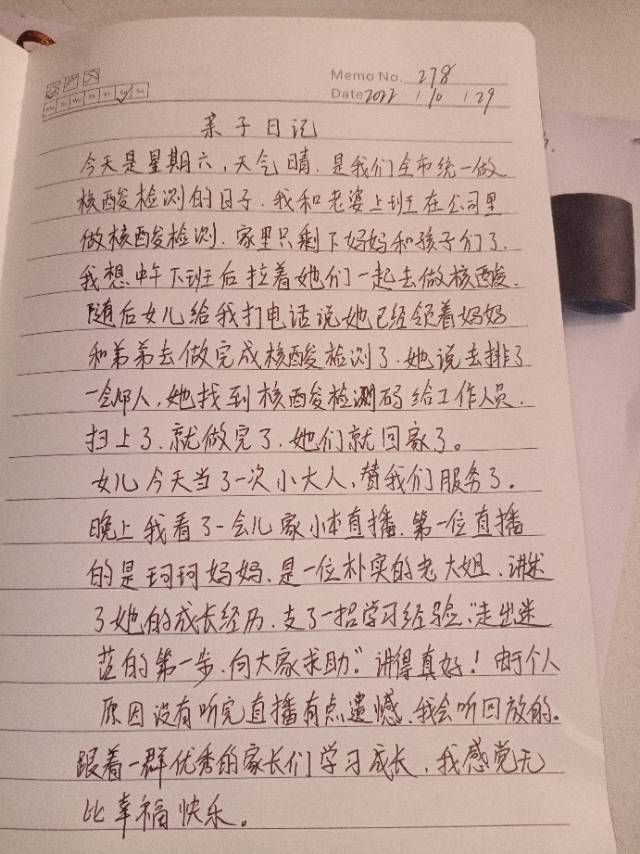 Memo No. 278
Date 2022 / 10 / 29
亲子日记
今天是星期六,天气晴.是我们全市统一做
核酸检测的日子.我和老婆上班在公司里
做核酸检测.家里只剩下妈妈和孩子们了.
我想中午下班后拉着她们一起去做核酸.
随后女儿给我打电话说她已经领着妈妈
和弟弟去做完成核酸检测了.她说去排了
一会儿人,她找到核酸检测码给工作人员.
扫上了.就做完了.她们就回家了。
女儿今天当了一次小大人,替我们服务了。
晚上我看了一会儿家小本直播.第一位直播
的是珂珂妈妈.是一位朴实的老大姐.讲述
了她的成长经历.支了一招学习经验."走出迷
茫的第一步.向大家求助."讲得真好!由于个人
原因没有听完直播有点遗憾.我会听回放的.
跟着一群优秀的家长们学习成长.我感觉无
比幸福快乐。